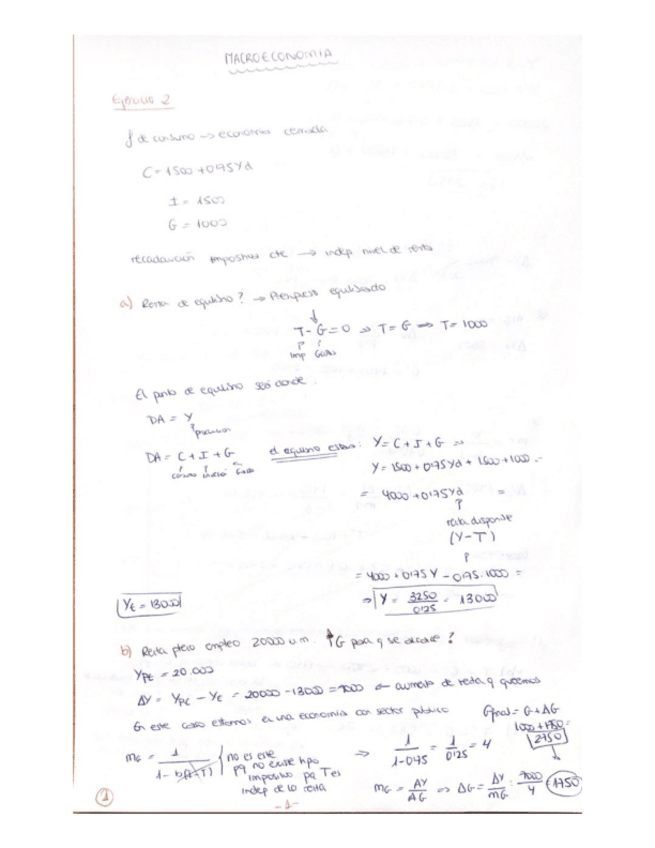 MACROECONOMIA
Ejercicio 2
f de consumo → economia cerrada
C = 1500 + 0'75Yd
I = 1500
G = 1000
recaudación impositiva cte → indep nivel de renta
a) Renta de equilibrio? → Presupuesto equilibrado
↓
T - G = 0 ⇒ T = G ⇒ T = 1000
imp Gasto
El punto de equilibrio será donde:
DA = Y
producción
DA = C + I + G el equilibrio estará: Y = C + I + G ⇒
consumo inversió Gasto Y = 1500 + 0'75Yd + 1500 + 1000 =
= 4000 + 0'75Yd =
renta disponible
(Y - T)
= 4000 + 0'75Y - 0'75·1000 =
YE = 13000 ⇒ Y = 3250 / 0'25 = 13000
b) Renta pleno empleo 20000 u.m. ↑G para q se alcance?
YPE = 20.000
ΔY = YPE - YE = 20000 - 13000 = 7000 ← aumento de renta q queremos
En este caso estamos en una economia con sector público Gfinal = G + ΔG
1000 + 1750 =
2750
mG = 1 / 1 - b(1-T) { no es ese pq no existe tipo impositivo pq T es indep de la renta ⇒ 1 / 1-0'75 = 1 / 0'25 = 4
mG = ΔY / ΔG ⇒ ΔG = ΔY / mG = 7000 / 4 = 1750
1
-1-